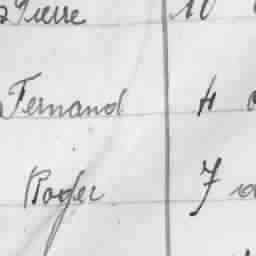 Pierre 10
Fernand 4
Roger 7